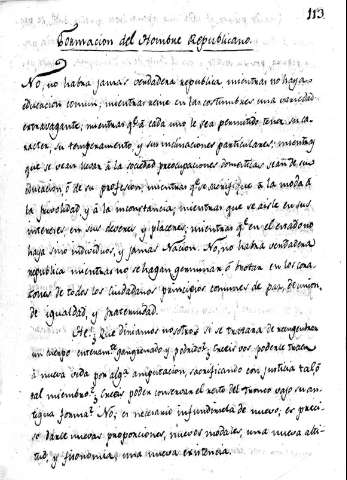 113
Formacion del Hombre Republicano.
No, no habra jamas verdadera republica mientras no haya
educacion comun; mientras reine en las costumbres una variedad
extravagante; mientras qe. á cada uno le sea permitido tener su ca-
racter, su temperamento, y sus inclinaciones particulares; mientras
que se vean llevar á la sociedad preocupaciones domesticas sean de su
educacion, ó de su profesion; mientras qe. se sacrifique á la moda á
la frivolidad y á la inconstancia; mientras que se aisle en sus
intereses, en sus deveres, y placeres; mientras qe. en el estado no
haya sino individuos, y jamas Nacion. No, no habrá verdadera
republica mientras no se hagan germinar ó brotar en los cora-
zones de todos los ciudadanos principios comunes de paz, de union,
de igualdad, y fraternidad.
Que diriamos nosotros si se tratara de reengendrar
un cuerpo enteramte. gangrenado y podrido? creeis vos poderle traer
á nueva vida por alga. amputacion, sacrificando con justicia tal ó
tal miembro? creeis poder conservar el resto del tronco bajo su an-
tigua forma? No; es necesario infundirsela de nuevo; es preci-
so darle nuevas proporciones, nuevos modales, una nueva alti-
tud, y fisonomia, una nueva existencia.